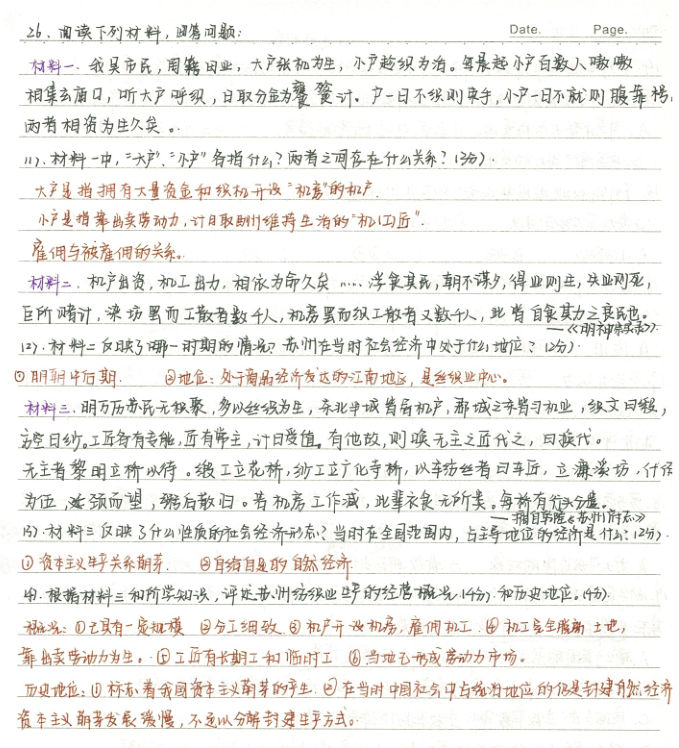 Date. Page.
26. 阅读下列材料,回答问题:
材料一. 我吴市民,罔籍田业,大户张机为生,小户趁织为活。每晨起小户百数人嗷嗷
相集玄庙口,听大户呼织,日取分金为饔飧计。户一日不织则束手,小户一日不就则腹枵,
两者相资为生久矣。
(1).材料一中,"大户"、"小户"各指什么?两者之间存在什么关系?(3分)
大户是指拥有大量资金和织机开设"机房"的机户.
小户是指靠出卖劳动力,计日取酬维持生活的"机(工)匠".
雇佣与被雇佣的关系。
材料二、机户出资,机工出力,相依为命久矣……浮食其民,朝不谋夕,得业则生,失业则死,
臣所睹计,染坊罢而工散者数千人,机房罢而织工散者又数千人,此皆自食其力之良民也。
——《明神宗实录》
(2).材料二反映了哪一时期的情况?苏州在当时社会经济中处于什么地位?(2分)
①明朝中后期. ②地位:处于商品经济发达的江南地区,是丝织业中心。
材料三.明万历苏民无积聚,多以丝织为生,东北半城皆居机户,郡城之东皆习机业,织文曰缎,
方空曰纱。工匠各有专能,匠有常主,计日受值。有他故,则唤无主之匠代之,曰换代。
无主者黎明立桥以待。缎工立花桥,纱工立广化寺桥,以车纺丝者曰车匠,立濂溪坊.什佰
为伍,延颈而望,粥后散归。若机房工作减,此辈衣食无所矣。每桥有行头分遣。
——摘自《苏州府志》
(3).材料三反映了什么性质的社会经济形态?当时在全国范围内,占主导地位的经济是什么?(2分)
①资本主义生产关系萌芽. ②自给自足的自然经济
(4).根据材料三和所学知识,评述苏州纺织业生产的经营概况(4分)和历史地位。(4分)
概况:①已具有一定规模 ②分工细致.③机户开设机房,雇佣机工.④机工完全脱离土地,
靠出卖劳动力为生。⑤工匠有长期工和临时工 ⑥当地已形成劳动力市场。
历史地位:①标志着我国资本主义萌芽的产生.②在当时中国社会中占统治地位的仍是封建自然经济
资本主义萌芽发展缓慢,不足以分解封建生产方式。